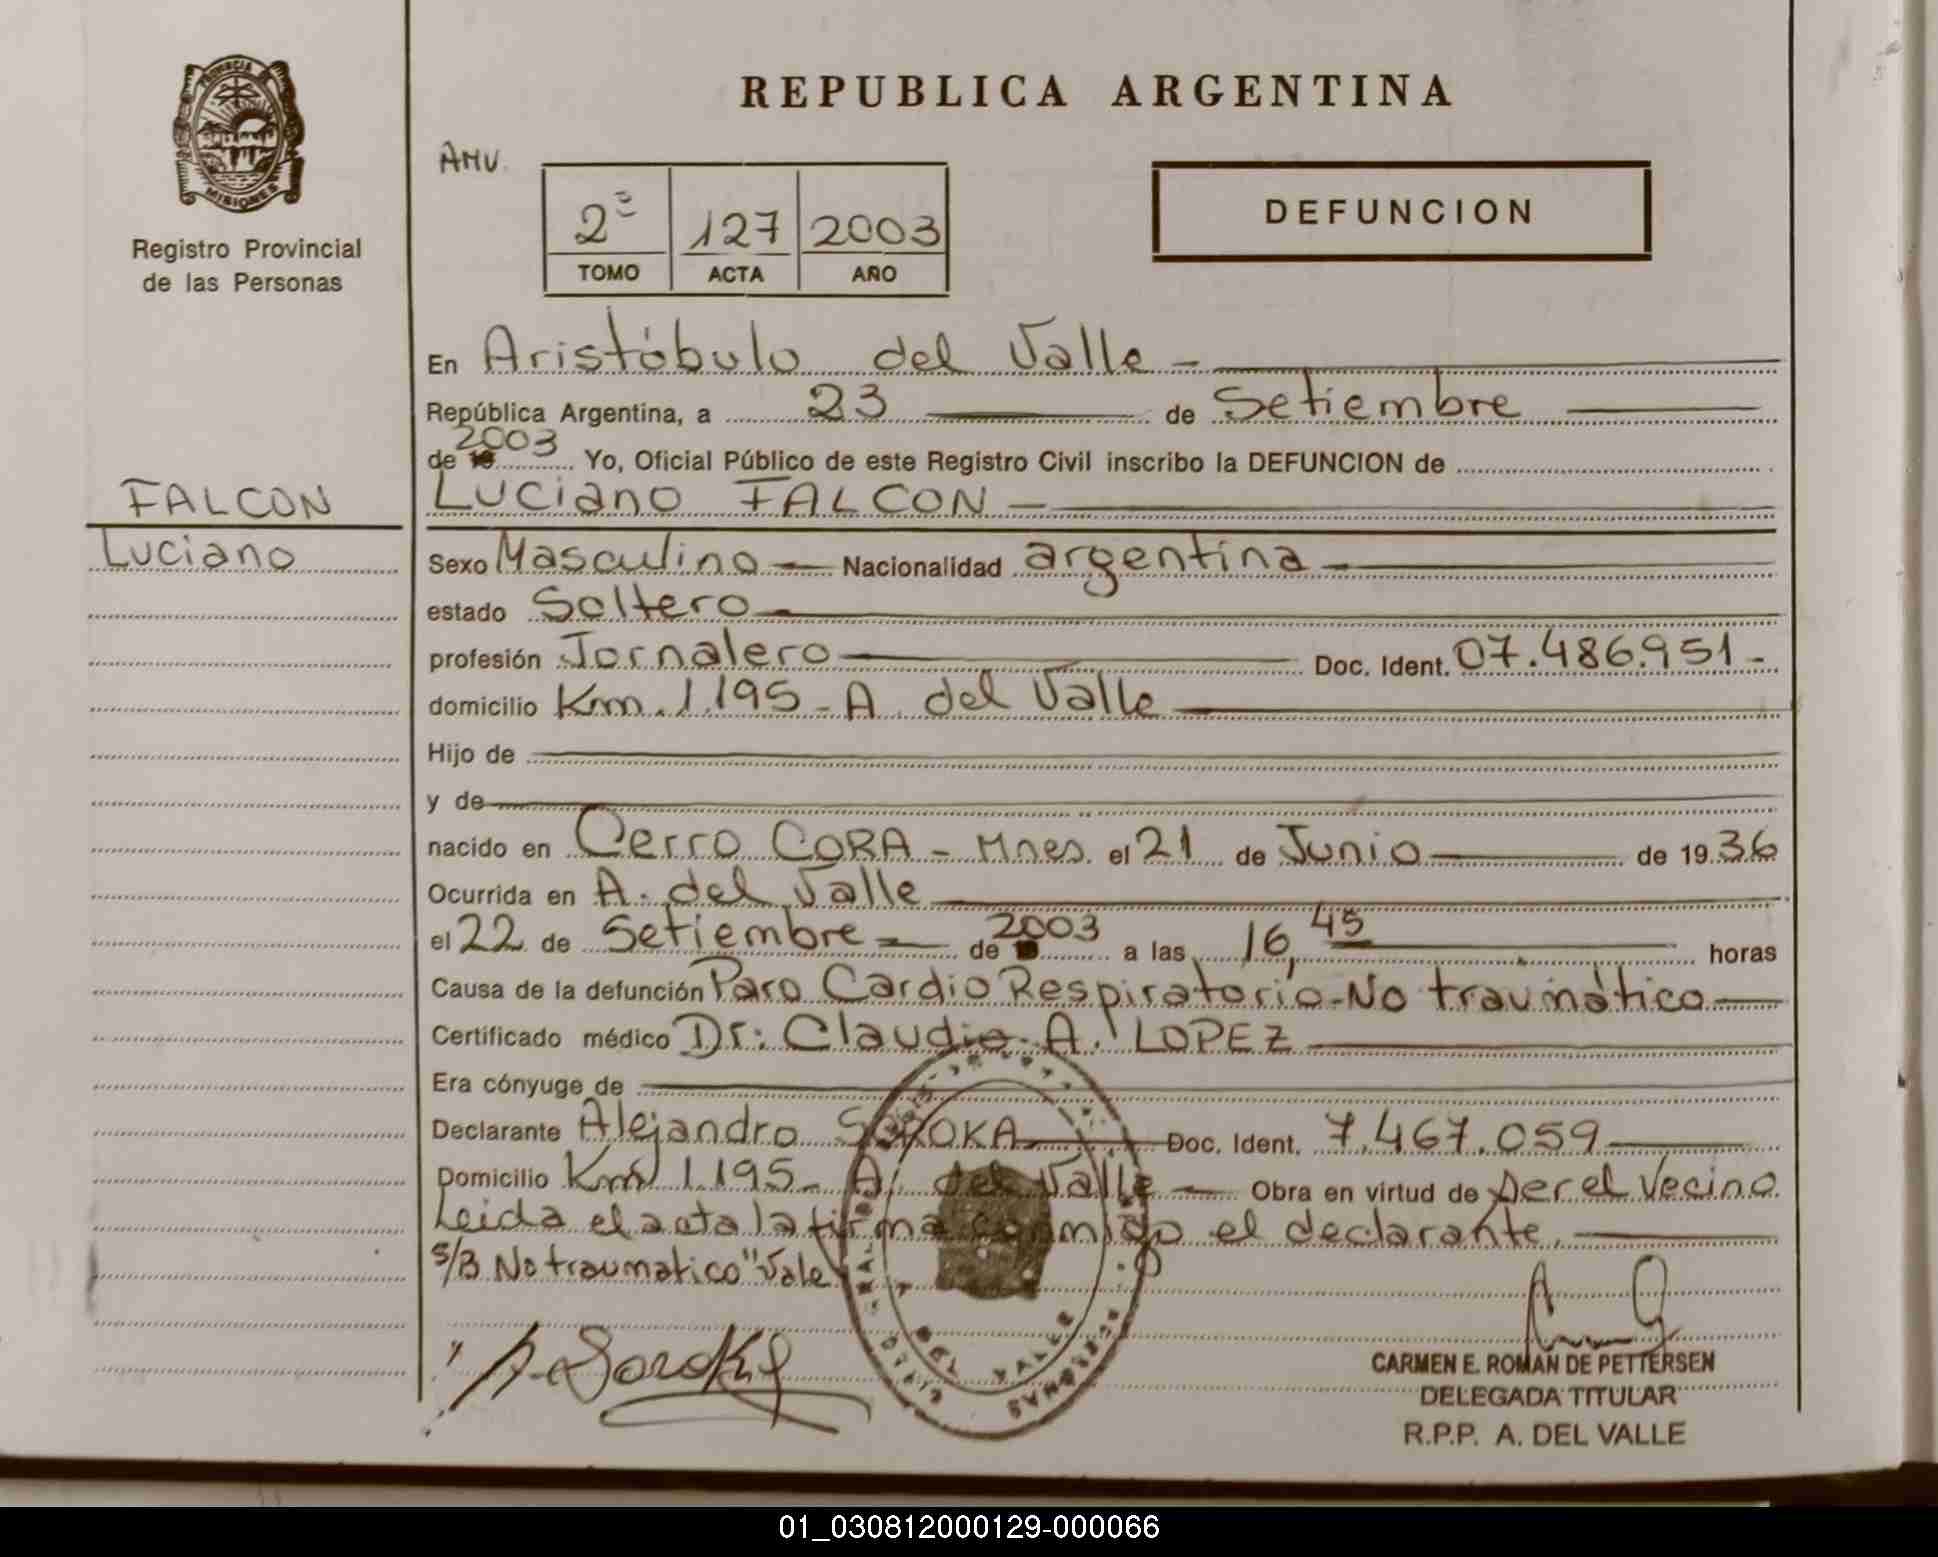 REPUBLICA ARGENTINA
PROVINCIA
MISIONES
Registro Provincial
de las Personas
AMV.
2º 127 2003
TOMO ACTA AÑO
DEFUNCION
En Aristóbulo del Valle -
República Argentina, a 23 de Setiembre
de 2003 Yo, Oficial Público de este Registro Civil inscribo la DEFUNCION de
FALCON
Luciano
Luciano FALCON -
Sexo Masculino - Nacionalidad argentina -
estado Soltero
profesión Jornalero Doc. Ident. 07.486.951 -
domicilio Km. 1.195 - A. del Valle
Hijo de
y de
nacido en Cerro CORA - Mnes. el 21 de Junio de 1936
Ocurrida en A. del Valle
el 22 de Setiembre de 2003 a las 16,45 horas
Causa de la defunción Paro Cardio Respiratorio - No traumático
Certificado médico Dr: Claudio A. LOPEZ
Era cónyuge de
Declarante Alejandro SOROKA Doc. Ident. 7.467.059
Domicilio Km 1.195 - A. del Valle - Obra en virtud de ser el Vecino
Leida el acta la firma conmigo el declarante.
S/B No traumatico "Vale
A. Soroka
DEL VALLE
MISIONES
CARMEN E. ROMAN DE PETTERSEN
DELEGADA TITULAR
R.P.P. A. DEL VALLE
01_030812000129-000066